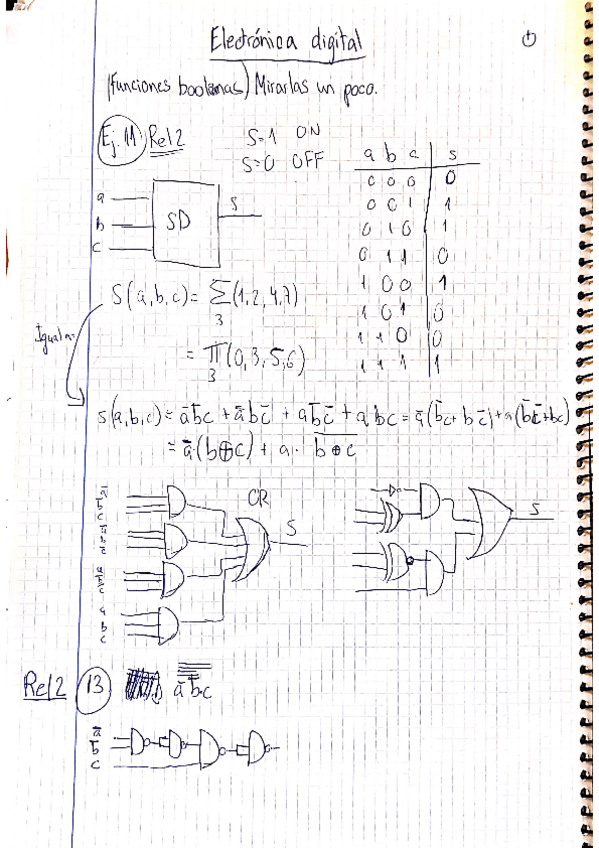 Electrónica digital
(Funciones booleanas) Mirarlas un poco.
Ej. 11 Rel 2
S=1 ON
S=0 OFF
a b c | s
0 0 0 | 0
0 0 1 | 1
0 1 0 | 1
0 1 1 | 0
1 0 0 | 1
1 0 1 | 0
1 1 0 | 0
1 1 1 | 1
a
b
c
SD
S
S(a,b,c)= ∑₃(1,2,4,7)
= ∏₃(0,3,5,6)
s(a,b,c)= a̅b̅c + a̅bc̅ + ab̅c̅ + abc = a̅(b̅c+bc̅)+a(b̅c̅+bc)
= a̅·(b⊕c) + a· b̅ ̅⊕̅ ̅c̅
a̅
b̅
c
a̅
b
c̅
a
b̅
c̅
a
b
c
OR
S
S
Rel 2 13 a̅b̅c
a̅
b̅
c